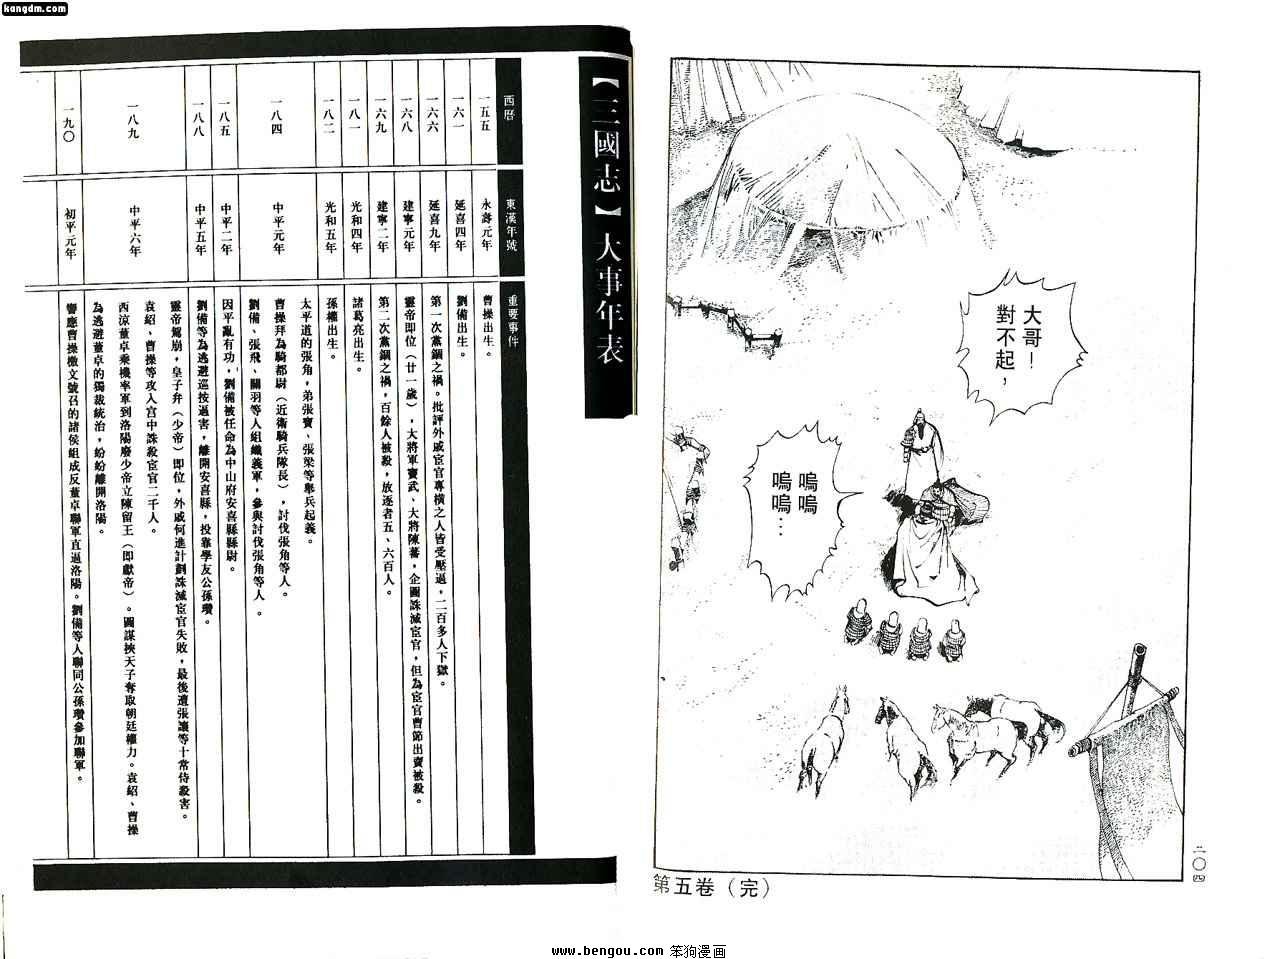 kangdm.com
大哥！
對不起，
嗚嗚
嗚嗚…
二〇四
第五卷（完）
【三國志】大事年表
西曆
東漢年號
重要事件
一五五
永壽元年
曹操出生。
一六一
延喜四年
劉備出生。
一六六
延喜九年
第一次黨錮之禍。批評外戚宦官專橫之人皆受壓逼，二百多人下獄。
一六八
建寧元年
靈帝即位（廿一歲），大將軍竇武、大將陳蕃，企圖誅滅宦官，但為宦官曹節出賣被殺。
一六九
建寧二年
第二次黨錮之禍，百餘人被殺，放逐者五、六百人。
一八一
光和四年
諸葛亮出生。
一八二
光和五年
孫權出生。
一八四
中平元年
太平道的張角，弟張寶、張梁等舉兵起義。
曹操拜為騎都尉（近衛騎兵隊長），討伐張角等人。
劉備、張飛、關羽等人組織義軍，參與討伐張角等人。
一八五
中平二年
因平亂有功，劉備被任命為中山府安喜縣縣尉。
一八八
中平五年
劉備等為逃避巡按逼害，離開安喜縣，投靠學友公孫瓚。
一八九
中平六年
靈帝駕崩，皇子弁（少帝）即位，外戚何進計劃誅滅宦官失敗，最後遭張讓等十常侍殺害。
袁紹、曹操等攻入宮中誅殺宦官二千人。
西涼董卓乘機率軍到洛陽廢少帝立陳留王（即獻帝）。圖謀挾天子奪取朝廷權力。袁紹、曹操
為逃避董卓的獨裁統治，紛紛離開洛陽。
一九〇
初平元年
響應曹操檄文號召的諸侯組成反董卓聯軍直逼洛陽。劉備等人聯同公孫瓚參加聯軍。
www.bengou.com 笨狗漫画